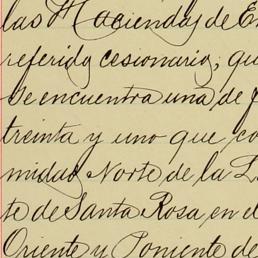 las Haciendas de E
referido cesionario; qu
se encuentra una de f
treinta y uno que co
midad Norte de la L
te de Santa Rosa en d
Oriente y Poniente de